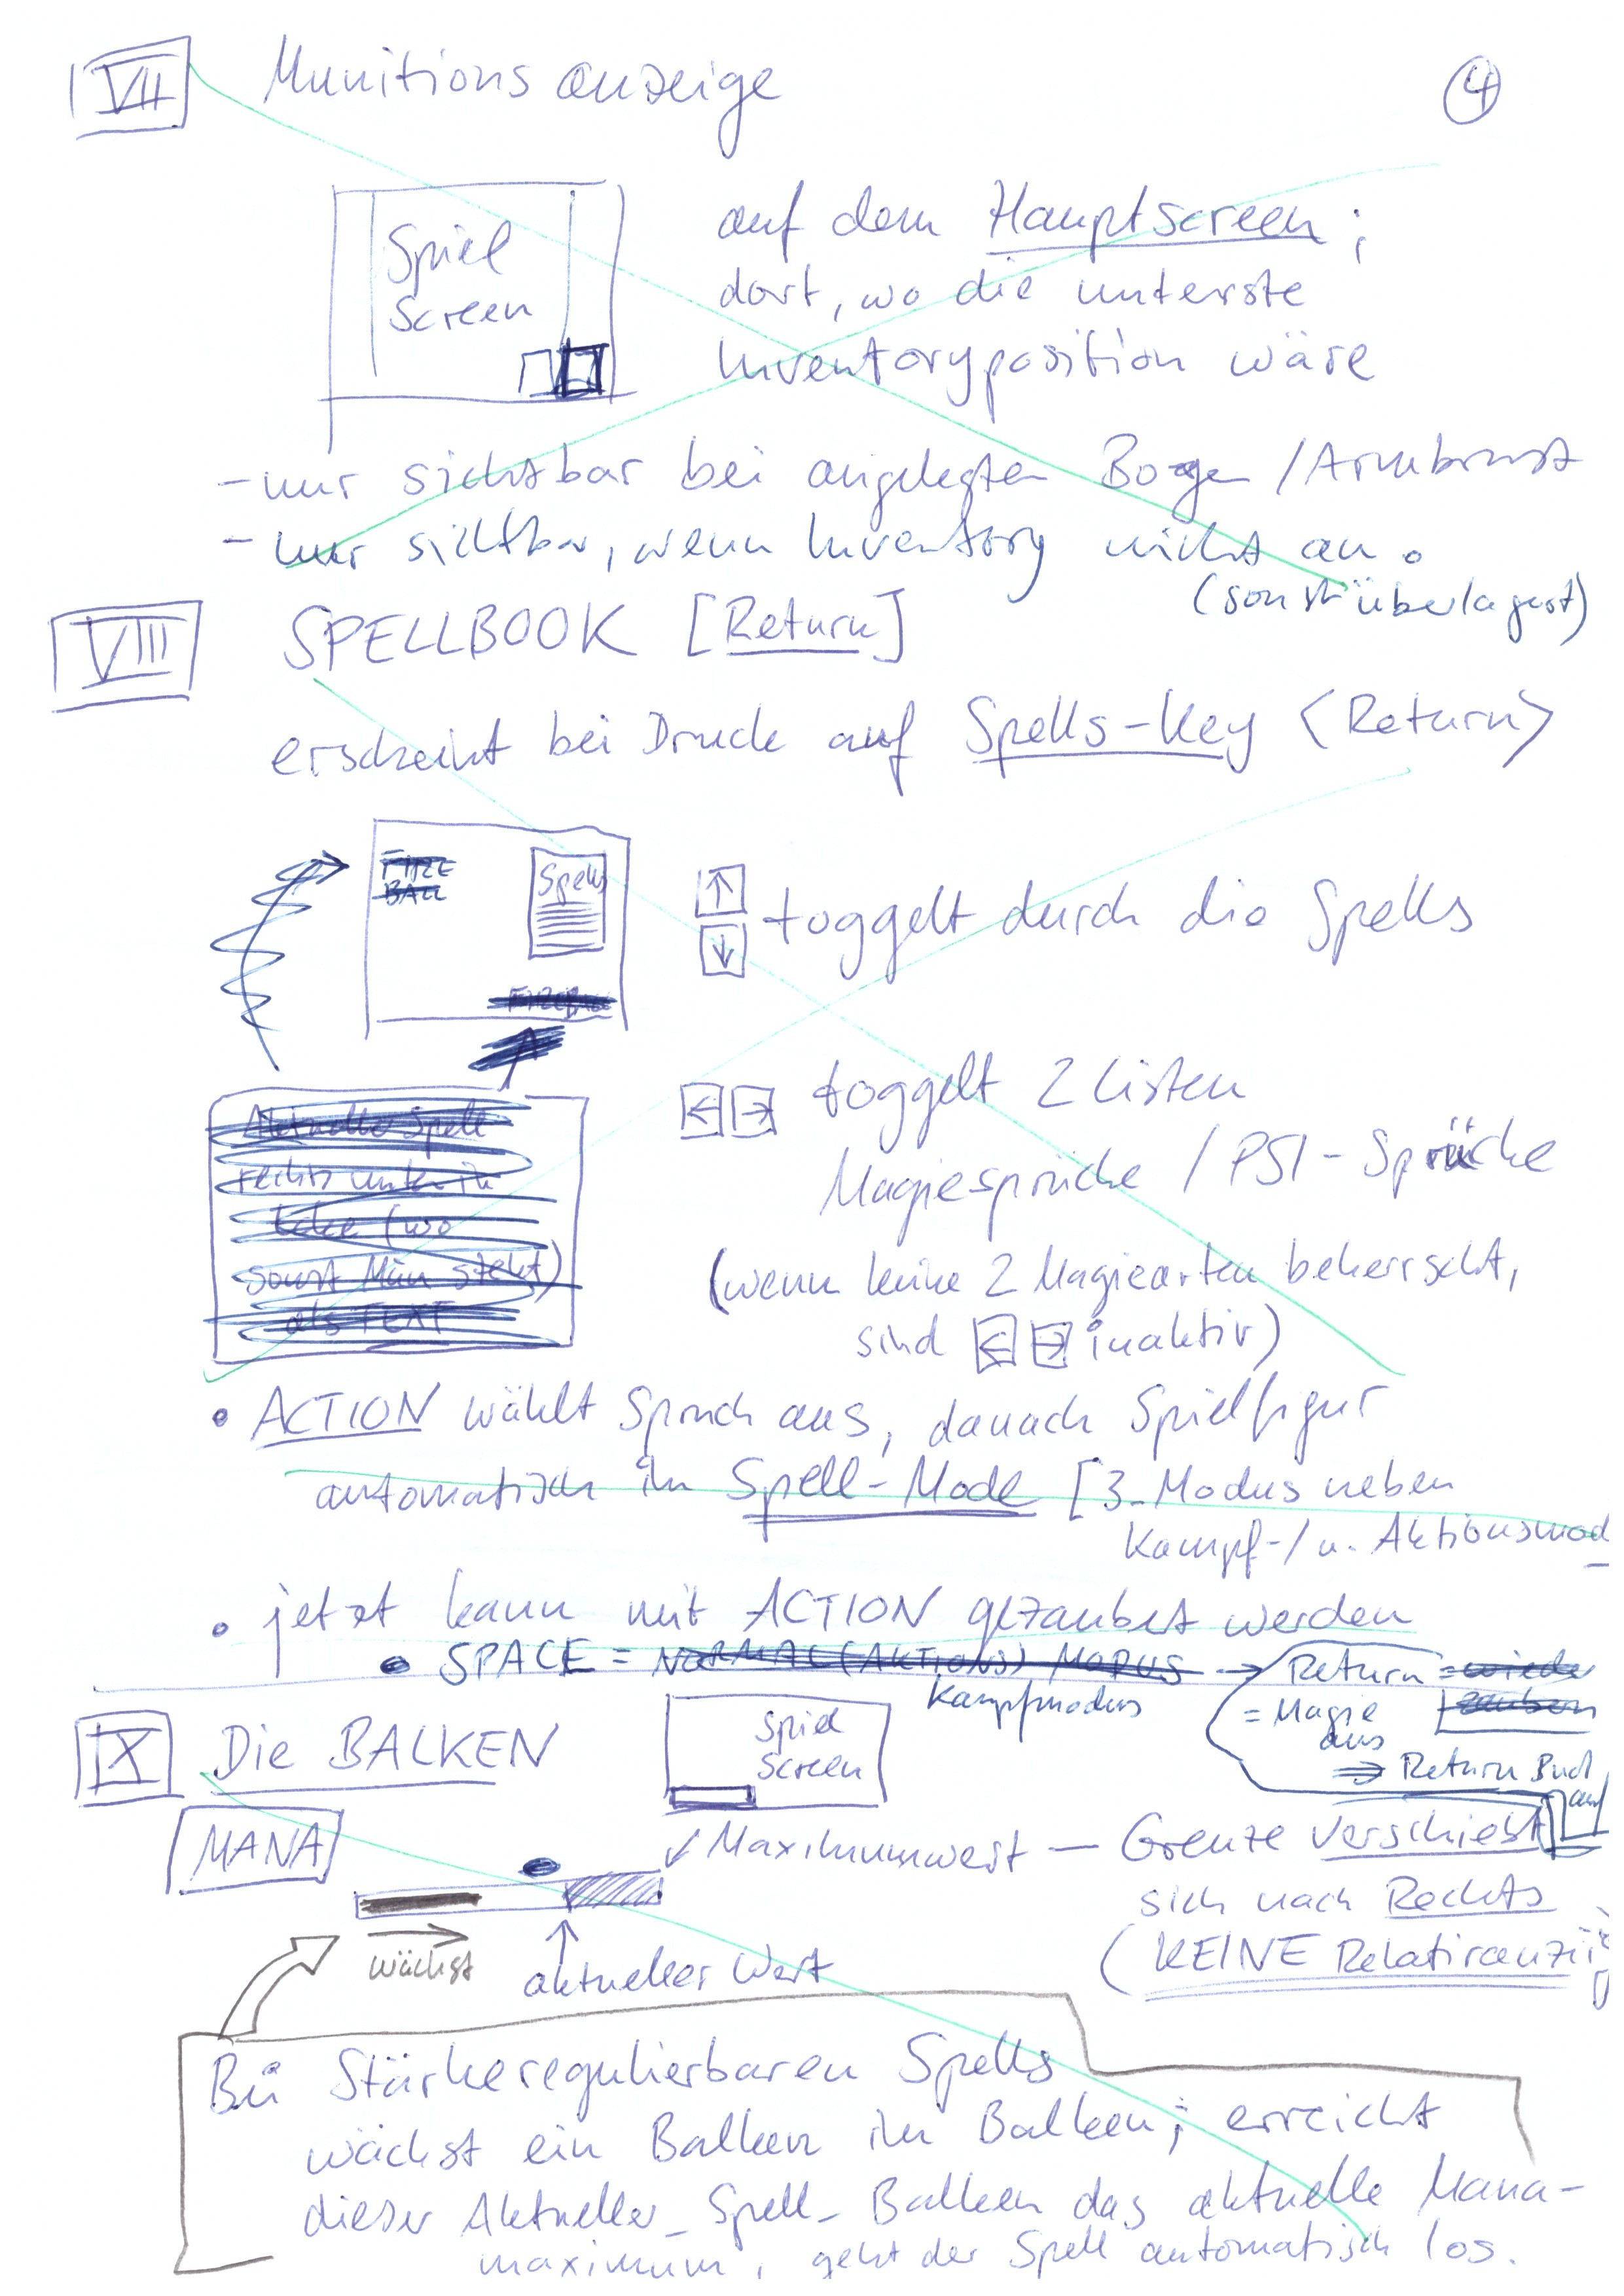 VII Munitionsanzeige
4
Spiel
Screen
auf dem Hauptscreen;
dort, wo die unterste
Inventoryposition wäre
- nur sichtbar bei angelegten Bogen / Armbrust
- nur sichtbar, wenn Inventory nicht an.
(sonst überlagert)
VIII SPELLBOOK [Return]
erscheint bei Druck auf Spells-Key <Return>
FIRE
BALL
Spells
↑
↓ toggelt durch die Spells
FIREBALL
← → toggelt 2 Listen
Magiesprüche / PSI-Sprüche
(wenn keine 2 Magiearten beherrscht,
sind ← → inaktiv)
Aktueller Spell
rechts unten in
Ecke (wo
sonst Mün steht)
als TEXT
• ACTION wählt Spruch aus, danach Spielfigur
automatisch im Spell-Mode [3. Modus neben
Kampf-/ u. Aktionsmod
• jetzt kann mit ACTION gezaubert werden
• SPACE = NORMAL (AKTIONS) MODUS → Return = wieder
Kampfmodus
= Magie zaubern
aus
⇒ Return Buch
auf
IX Die BALKEN
Spiel
Screen
MANA
Maximumwert — Grenze verschiebt
sich nach Rechts
(KEINE Relativanzeig
wächst
aktueller Wert
Bei Stärkeregulierbaren Spells
wächst ein Balken im Balken; erreicht
dieser Aktueller-Spell-Balken das aktuelle Mana-
maximum, geht der Spell automatisch los.